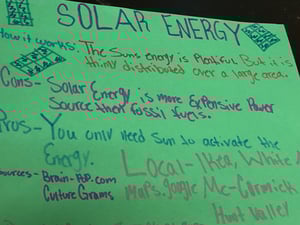 SOLAR ENERGY
How it works: The Suns energy is Plentiful But it is
thinly distributed over a large area.
Cons- Solar Energy is more Expensive Power
Source then fossil fuels.
Pros- You only need Sun to activate the
Energy.
Local- Ikea, White
Sources- Brain-POP.com
Maps.google, Mc-Cormick
Culture Grams
Hunt Valley